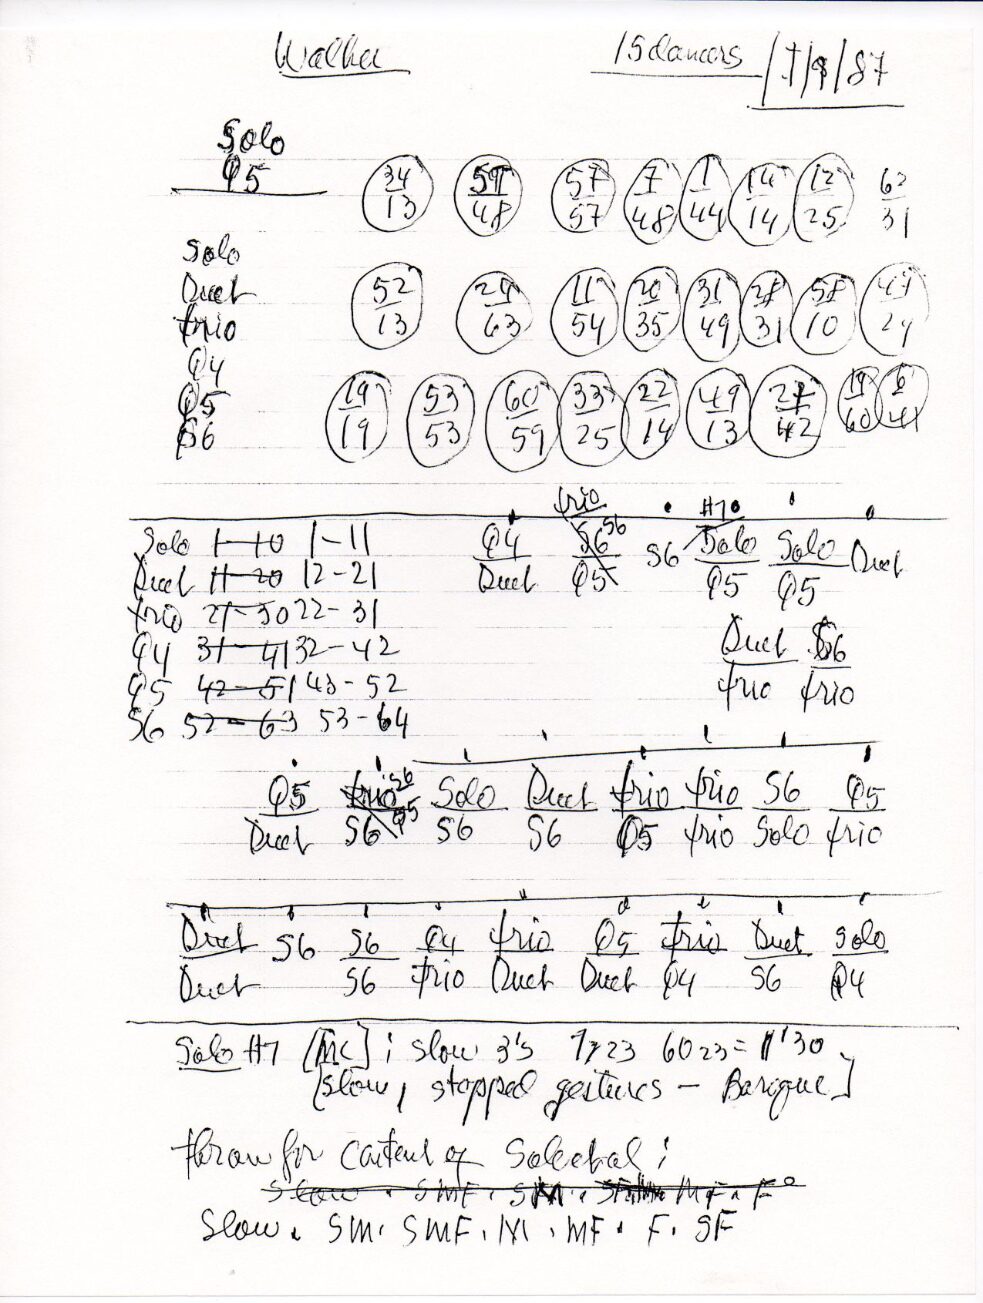 Walker 15 dancers 1/7/9/87
Solo
Q5
34/13 59/48 57/57 7/48 1/44 14/14 12/25 62/31
Solo
Duet 52/13 24/63 11/54 20/35 31/49 28/31 58/10 49/24
trio
Q4
Q5 19/19 53/53 60/59 33/25 22/14 49/13 27/42 19/60 6/41
S6
trio H70
Solo 1-10 1-11 Q4 S6 S6 S6 Solo Solo Duet
Duet 11-20 12-21 Duet Q5 Q5 Q5
trio 21-30 22-31
Q4 31-41 32-42 Duet S6
Q5 42-51 43-52 trio trio
S6 52-63 53-64
Q5 trio S6 Solo Duet trio trio S6 Q5
Duet S6 Q5 S6 S6 Q5 trio Solo trio
Duet S6 S6 Q4 trio Q5 trio Duet Solo
Duet S6 trio Duet Duet Q4 S6 Q4
Solo #7 [MC] ; slow 3's 60 23 = 1'30
[slow, stopped gestures —
throw for content of
Slow . SMF . SM . MF . F
Slow . SM . SMF . M . MF . F . SF